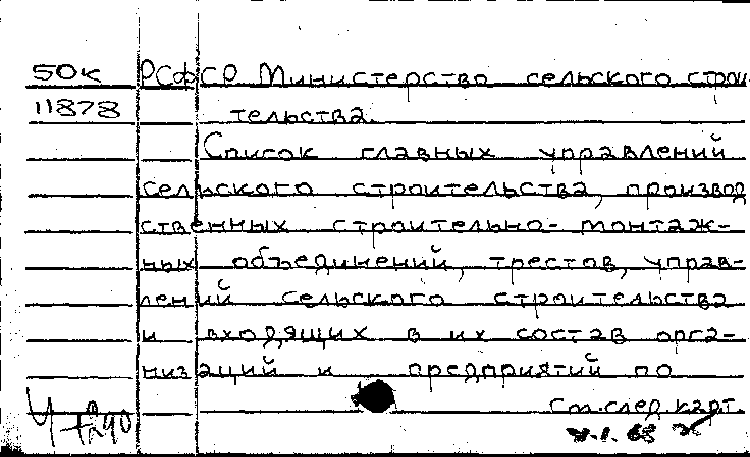 50к РСФСР Министерство сельского строи
11878 тельства.
Список главных управлений
сельского строительства, производ
ственных строительно-монтаж-
ных объединений, трестов, управ-
лений сельского строительства
и входящих в их состав орга-
низаций и предприятий по
См.след.карт.